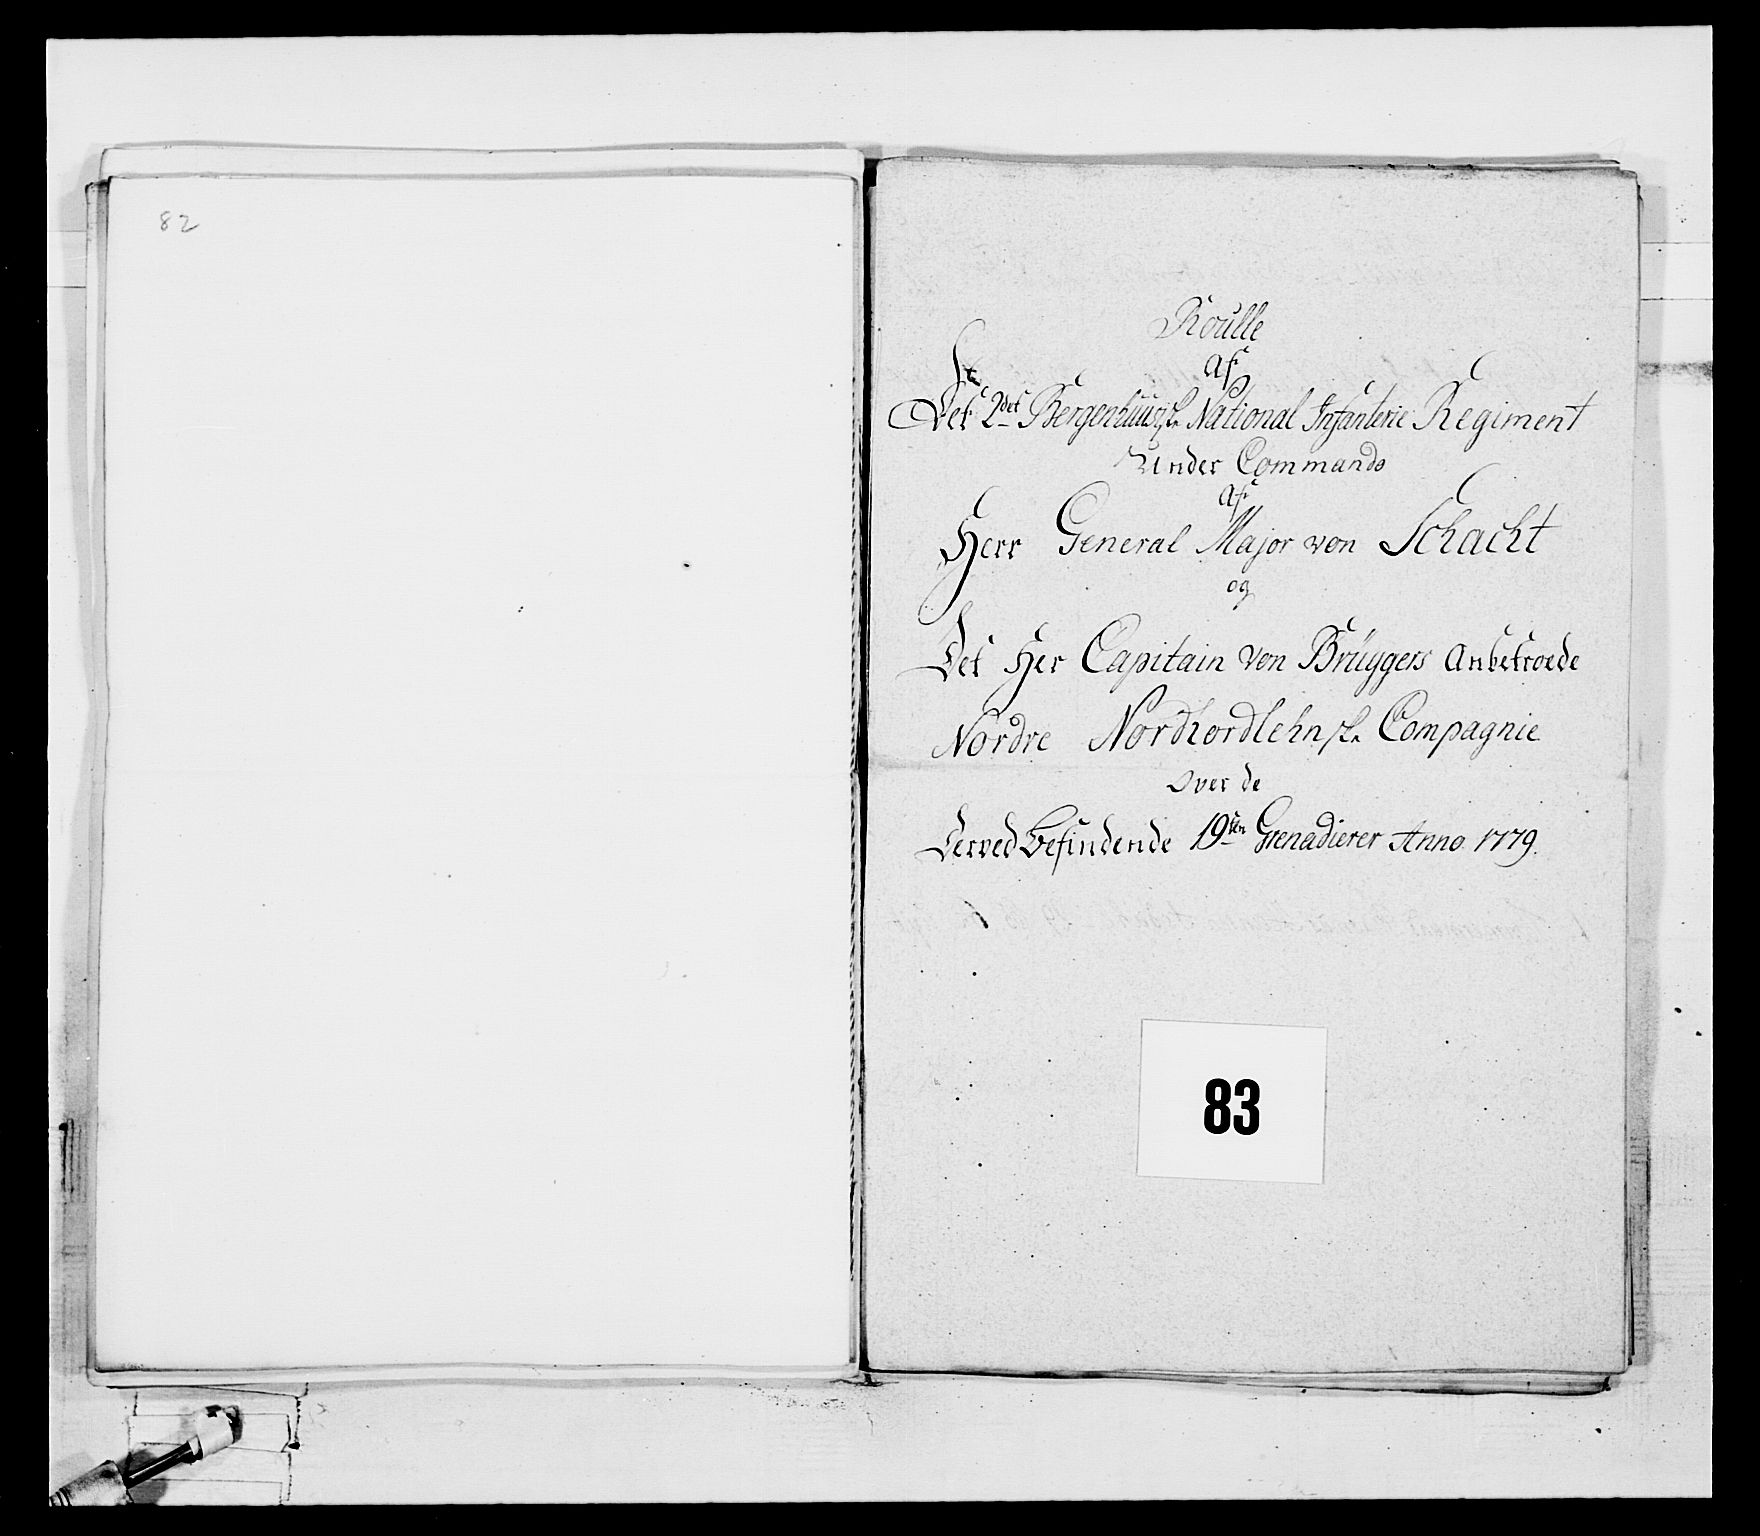 82
Roulle
af
Det 2det Bergenhuusiske National Infanterie Regiment
Under Commando
af
Herr General Major von Schacht
og
Det Her Capitain von Brüggers Anbetroede
Nordre Nordhordlehnske Compagnie
over de
Derved befindende 19ten Grenadierer Anno 1779.
83